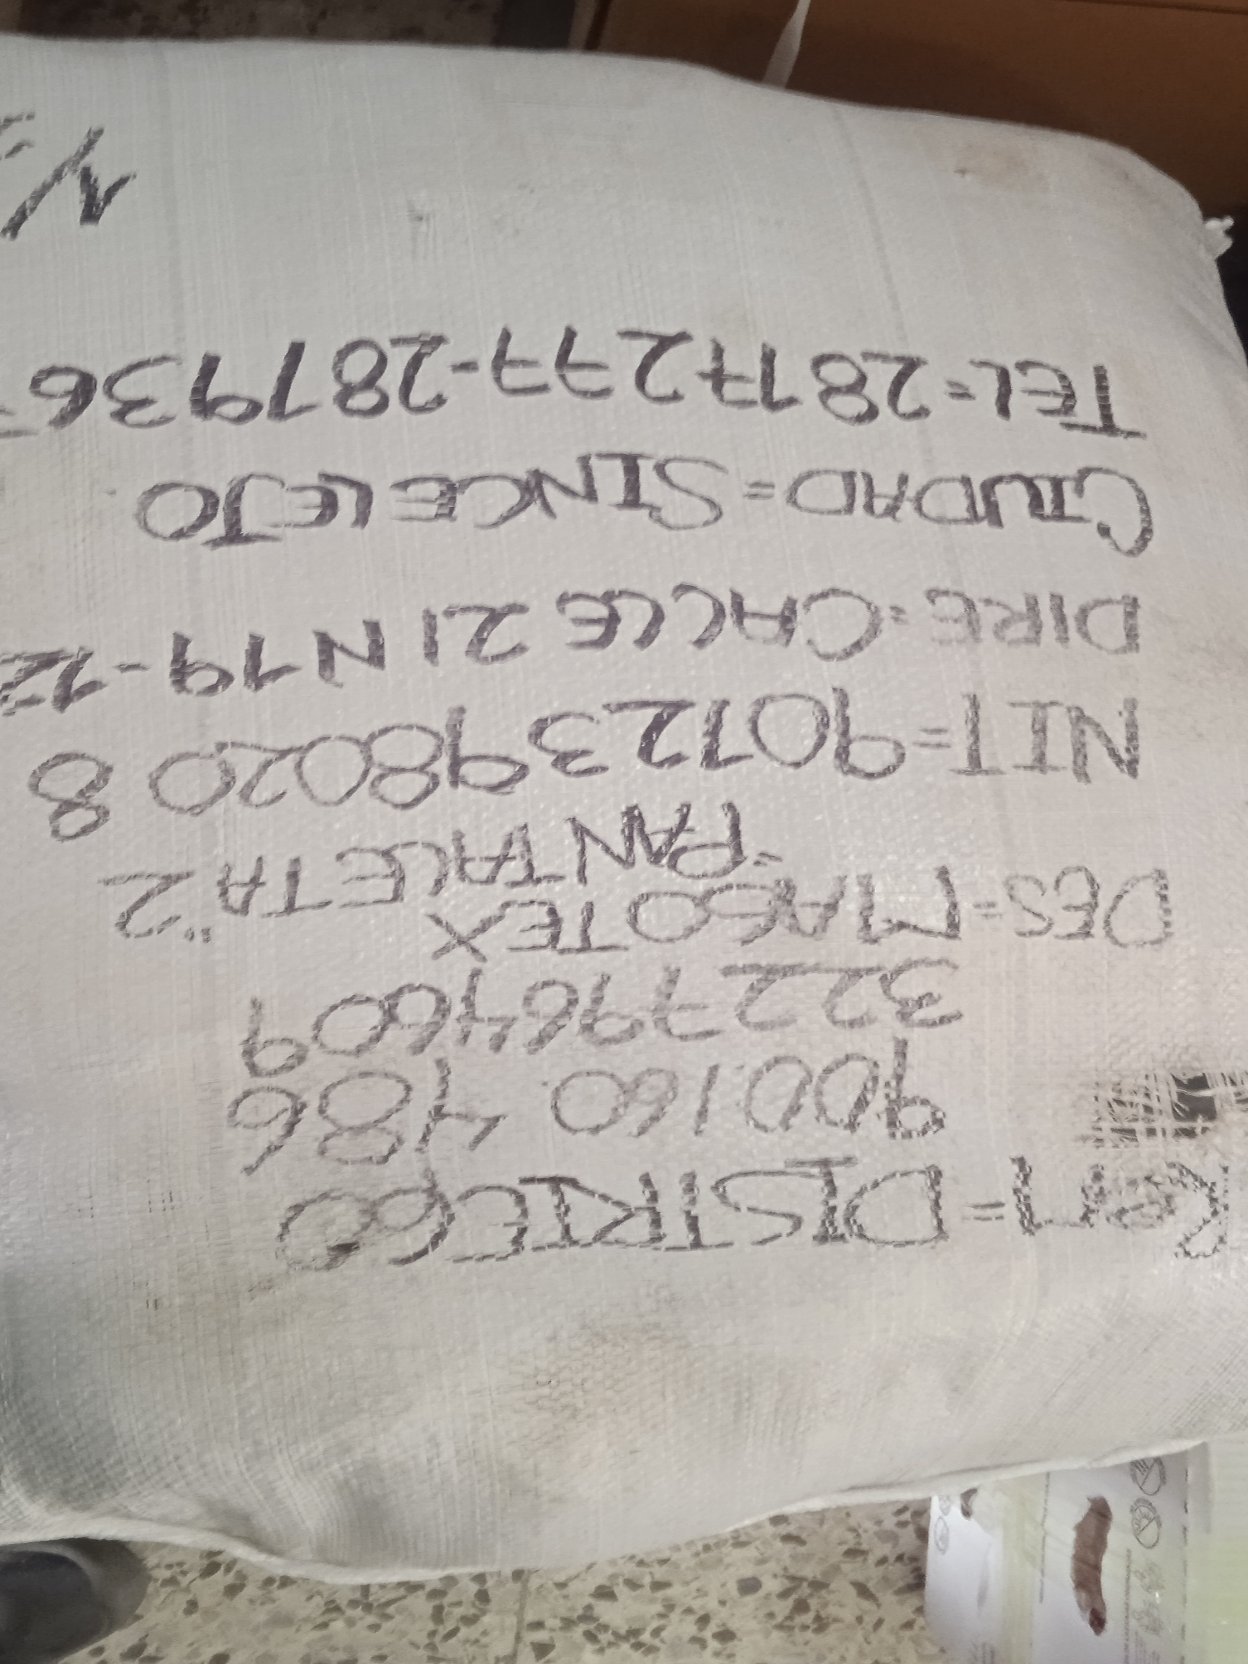 REM=DISTRIEGO
900160 486
3227964609
DES=MABOTEX
="PANTALETA 2"
NIT=9012398020 8
DIRE=CALLE 21 N 19-12
CIUDAD=SINCELEJO
TEL=2817277-2817936
1/